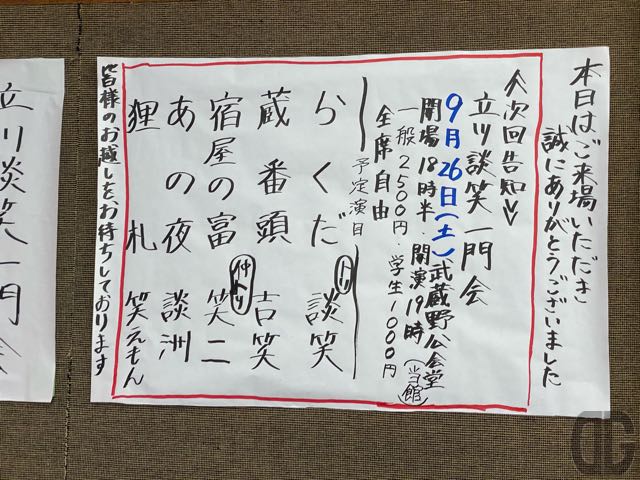 本日はご来場いただき
誠にありがとうございました
《次回告知》
立川談笑一門会
9月26日(土)武蔵野公会堂(当館)
開場18時半・開演19時
一般2500円・学生1000円
全席自由
予定演目
らくだ 談笑 トリ
蔵番頭 吉笑
宿屋の富 笑二 仲トリ
あの夜 談洲
狸札 笑えもん
皆様のお越しをお待ちしております
立川談笑一門会
DC